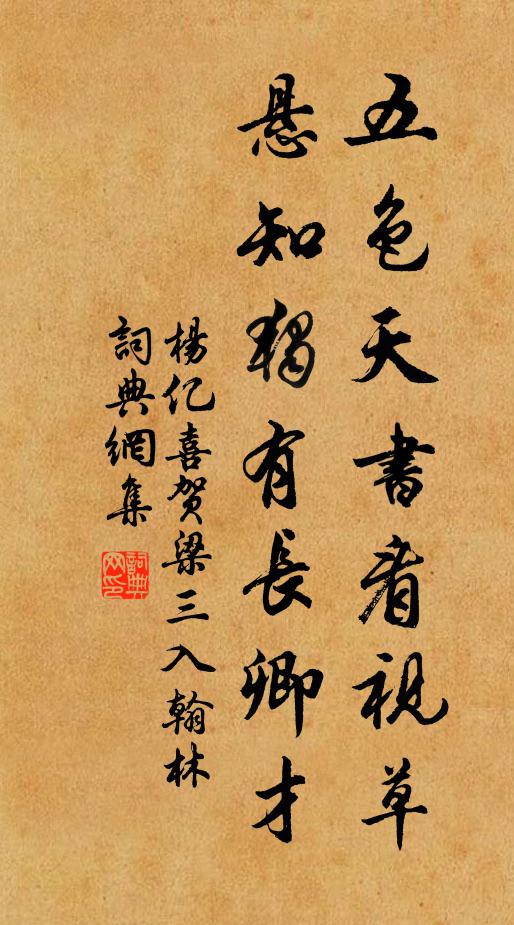 五色天書看視草
悬知獨有長卿才
楊亿喜贺梁三入翰林
詞典網集
詞典网印